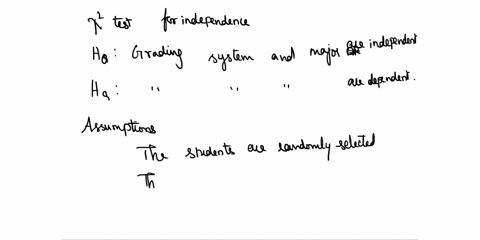 χ² test for independence
H₀: Grading system and major are independent
Hₐ: " " " are dependent.
Assumptions
The students are randomly selected
Th